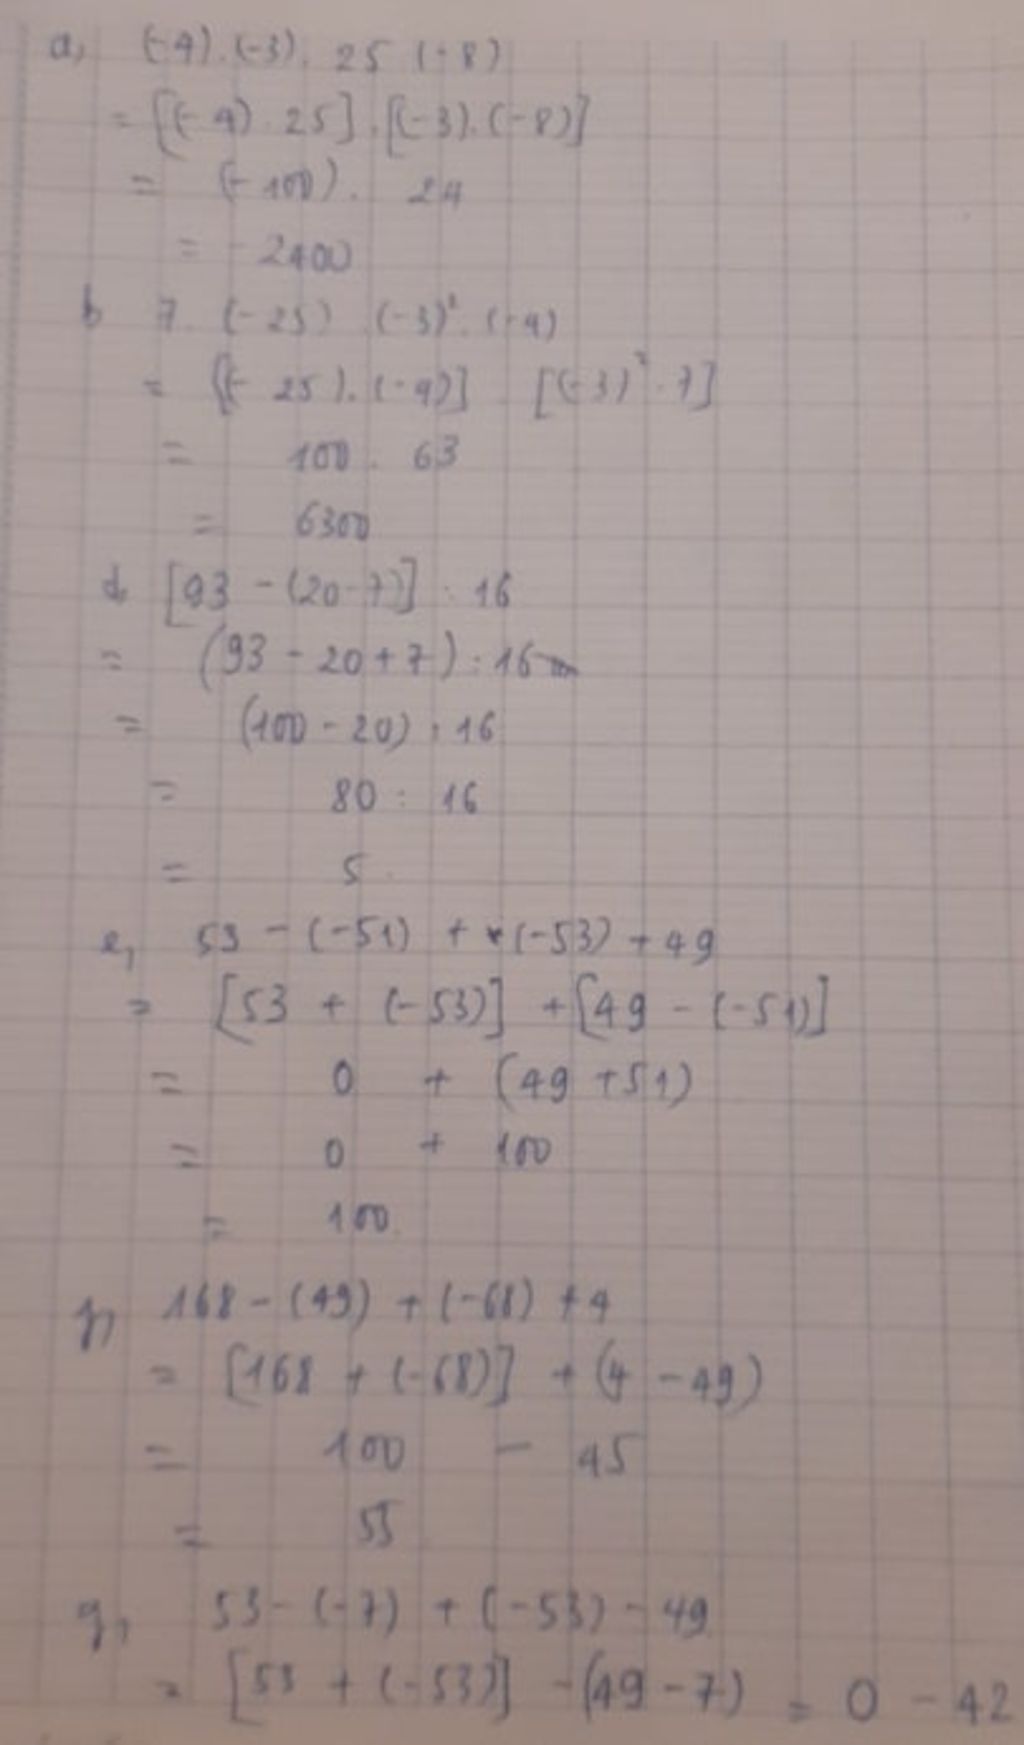 a, (-4).(-3). 25 (-8)
= [(-4) . 25] . [(-3).(-8)]
= (-100). 24
= -2400
b 7. (-25) . (-3)². (-4)
= [(-25).(-4)] [(-3)² . 7]
= 100 . 63
= 6300
d, [93 - (20-7)] : 16
= (93 - 20 + 7) : 16
= (100 - 20) : 16
= 80 : 16
= 5
e, 53 - (-51) + (-53) + 49
= [53 + (-53)] + [49 - (-51)]
= 0 + (49 + 51)
= 0 + 100
= 100
f, 168 - (49) + (-68) + 4
= [168 + (-68)] + (4 - 49)
= 100 - 45
= 55
g, 53 - (-7) + (-53) - 49
= [53 + (-53)] - (49 - 7) = 0 - 42